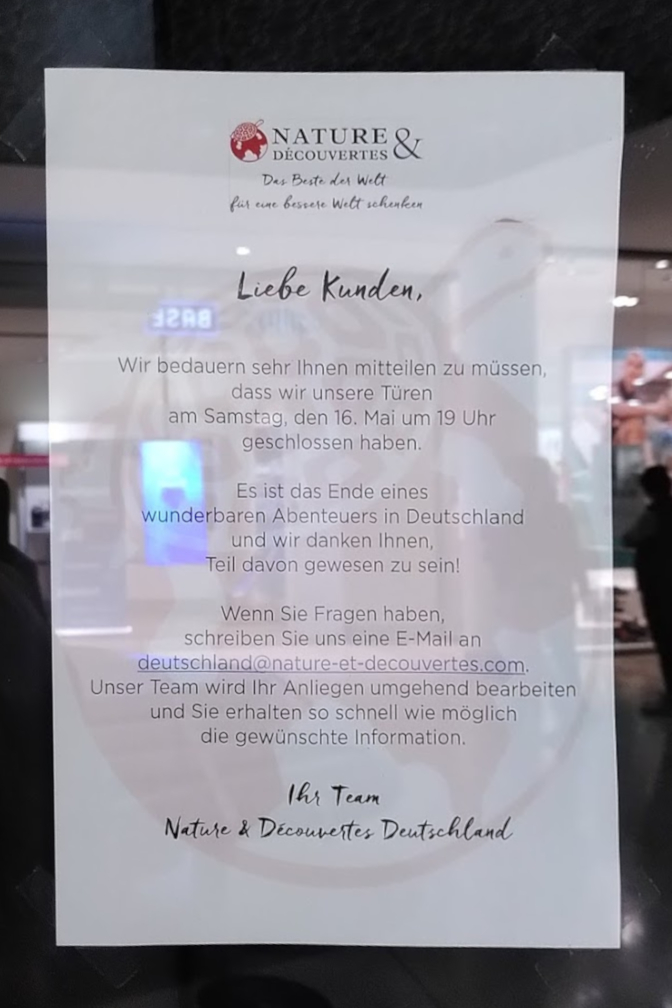 NATURE &
DÉCOUVERTES
Das Beste der Welt
für eine bessere Welt schenken
Liebe Kunden,
BASE
Wir bedauern sehr Ihnen mitteilen zu müssen,
dass wir unsere Türen
am Samstag, den 16. Mai um 19 Uhr
geschlossen haben.
Es ist das Ende eines
wunderbaren Abenteuers in Deutschland
und wir danken Ihnen,
Teil davon gewesen zu sein!
Wenn Sie Fragen haben,
schreiben Sie uns eine E-Mail an
deutschland@nature-et-decouvertes.com.
Unser Team wird Ihr Anliegen umgehend bearbeiten
und Sie erhalten so schnell wie möglich
die gewünschte Information.
Ihr Team
Nature & Découvertes Deutschland